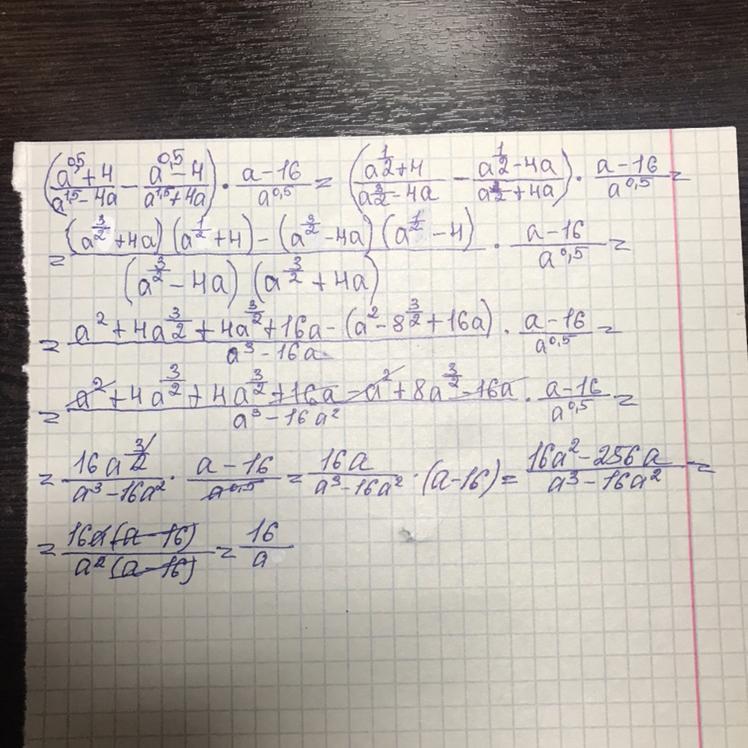 (a^0,5 + 4 / a^1,5 - 4a - a^0,5 - 4 / a^1,5 + 4a) · a - 16 / a^0,5 = (a^1/2 + 4 / a^3/2 - 4a - a^1/2 - 4a / a^3/2 + 4a) · a - 16 / a^0,5 =
= (a^3/2 + 4a)(a^1/2 + 4) - (a^3/2 - 4a)(a^1/2 - 4) / (a^3/2 - 4a)(a^3/2 + 4a) · a - 16 / a^0,5 =
= a^2 + 4a^3/2 + 4a^3/2 + 16a - (a^2 - 8^3/2 + 16a) / a^3 - 16a · a - 16 / a^0,5 =
= a^2 + 4a^3/2 + 4a^3/2 + 16a - a^2 + 8a^3/2 - 16a / a^3 - 16a^2 · a - 16 / a^0,5 =
= 16a^3/2 / a^3 - 16a^2 · a - 16 / a^0,5 = 16a / a^3 - 16a^2 · (a - 16) = 16a^2 - 256a / a^3 - 16a^2 =
= 16a(a - 16) / a^2(a - 16) = 16 / a